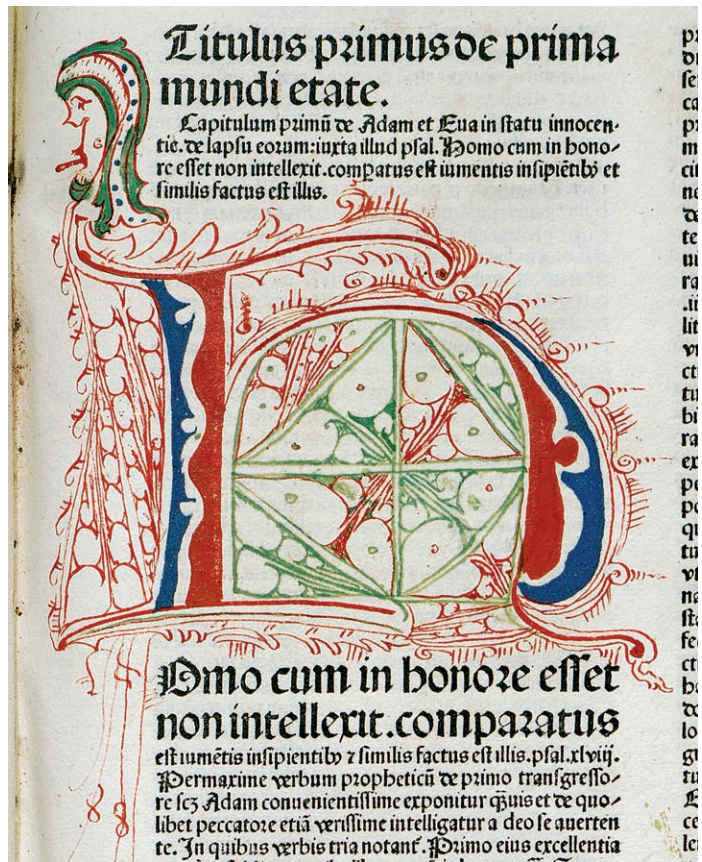 Titulus primus de prima
mundi etate.
Capitulum primū de Adam et Eua in statu innocen-
tie. de lapsu eorum: iuxta illud psal. Homo cum in hono-
re esset non intellexit. comparatus est iumentis insipiētibꝰ et
similis factus est illis.
Omo cum in honore esset
non intellexit. comparatus
est iumētis insipientibꝰ ⁊ similis factus est illis. psal. xlviij.
Permaxime verbum propheticū de primo transgresso-
re scꝫ Adam conuenientissime exponitur q̄uis et de quo-
libet peccatore etiā verissime intelligatur a deo se auerten
te. In quibus verbis tria notant᷑. Primo eius excellentia